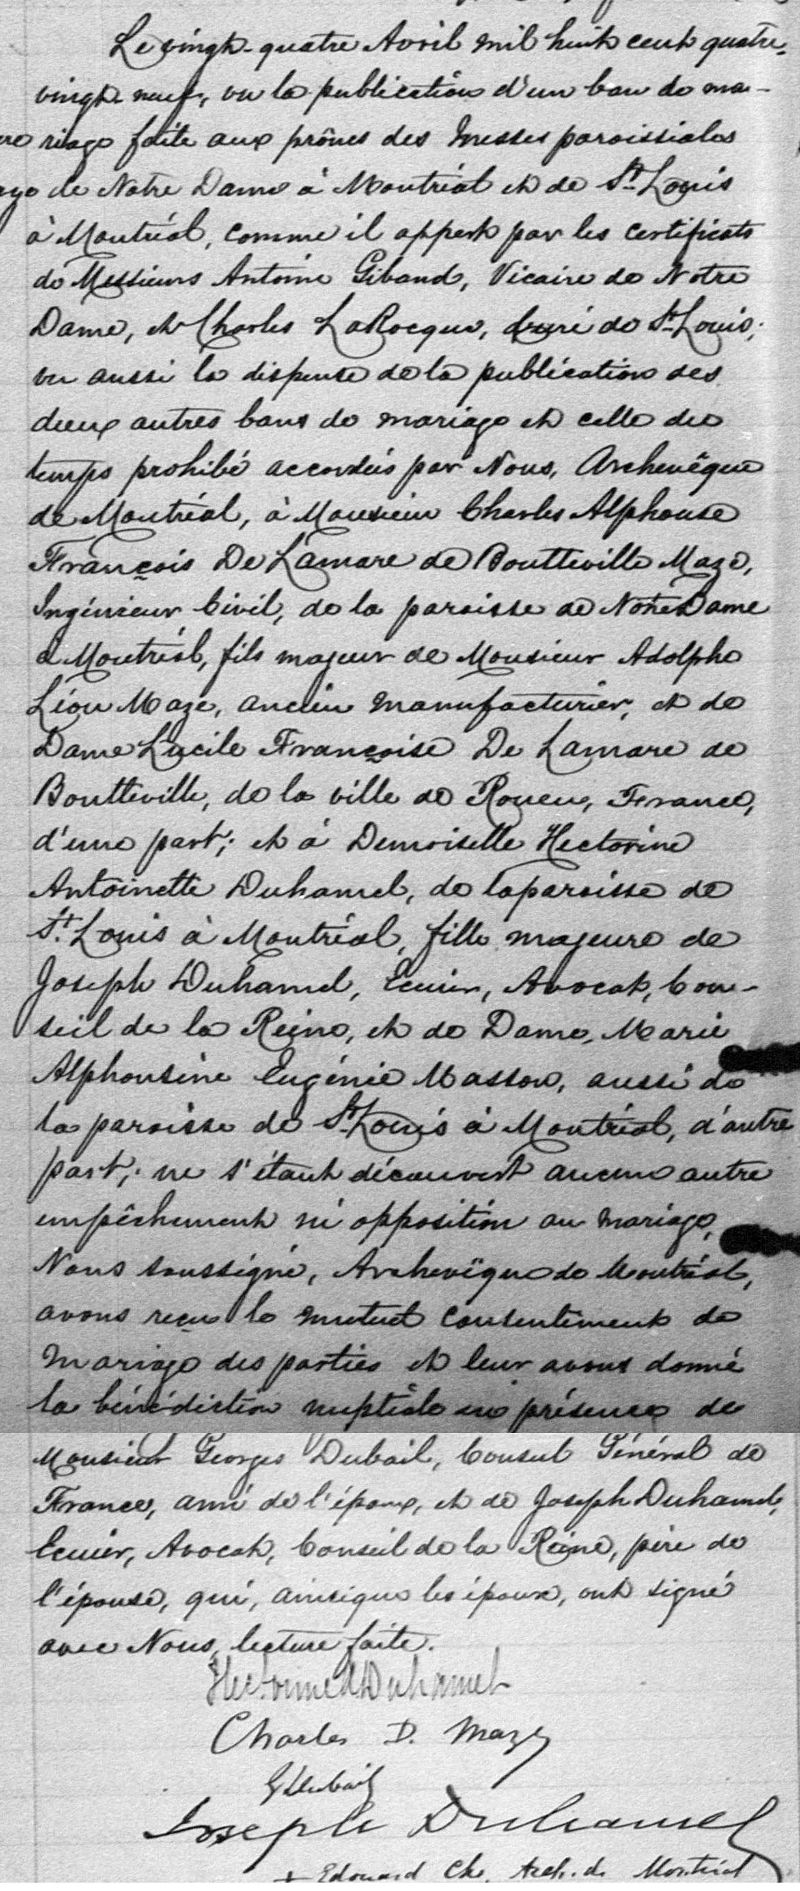 Le vingt-quatre Avril mil huit cent quatre-
vingt-neuf, vu la publication d'un ban de ma-
riage faite aux prônes des messes paroissiales
de Notre Dame à Montréal et de St. Louis
à Montréal, comme il appert par les certificats
de Messieurs Antoine Giband, Vicaire de Notre
Dame, et Charles LaRocque, Curé de St. Louis;
vu aussi la dispense de la publication des
deux autres bans de mariage et celle du
temps prohibé accordés par Nous, Archevêque
de Montréal, à Monsieur Charles Alphonse
François De Lamare de Boutteville Maze,
Ingénieur Civil, de la paroisse de Notre Dame
à Montréal, fils majeur de Monsieur Adolphe
Léon Maze, ancien manufacturier, et de
Dame Lucile Françoise De Lamare de
Boutteville, de la ville de Rouen, France,
d'une part; et à Demoiselle Hectorine
Antoinette Duhamel, de la paroisse de
St. Louis à Montréal, fille majeure de
Joseph Duhamel, Ecuier, Avocat, Con-
seil de la Reine, et de Dame Marie
Alphonsine Eugénie Masson, aussi de
la paroisse de St. Louis à Montréal, d'autre
part; ne s'étant découvert aucun autre
empêchement ni opposition au mariage,
Nous soussigné, Archevêque de Montréal,
avons reçu le mutuel consentement de
mariage des parties et leur avons donné
la bénédiction nuptiale en présence de
Monsieur Georges Dubail, Consul Général de
France, ami de l'époux, et de Joseph Duhamel,
Ecuier, Avocat, Conseil de la Reine, père de
l'épouse, qui, ainsi que les époux, ont signé
avec Nous, lecture faite.
Hectorine A Duhamel
Charles D. Maze
G Dubail
Joseph Duhamel
+ Edouard Ch. Arch. de Montréal